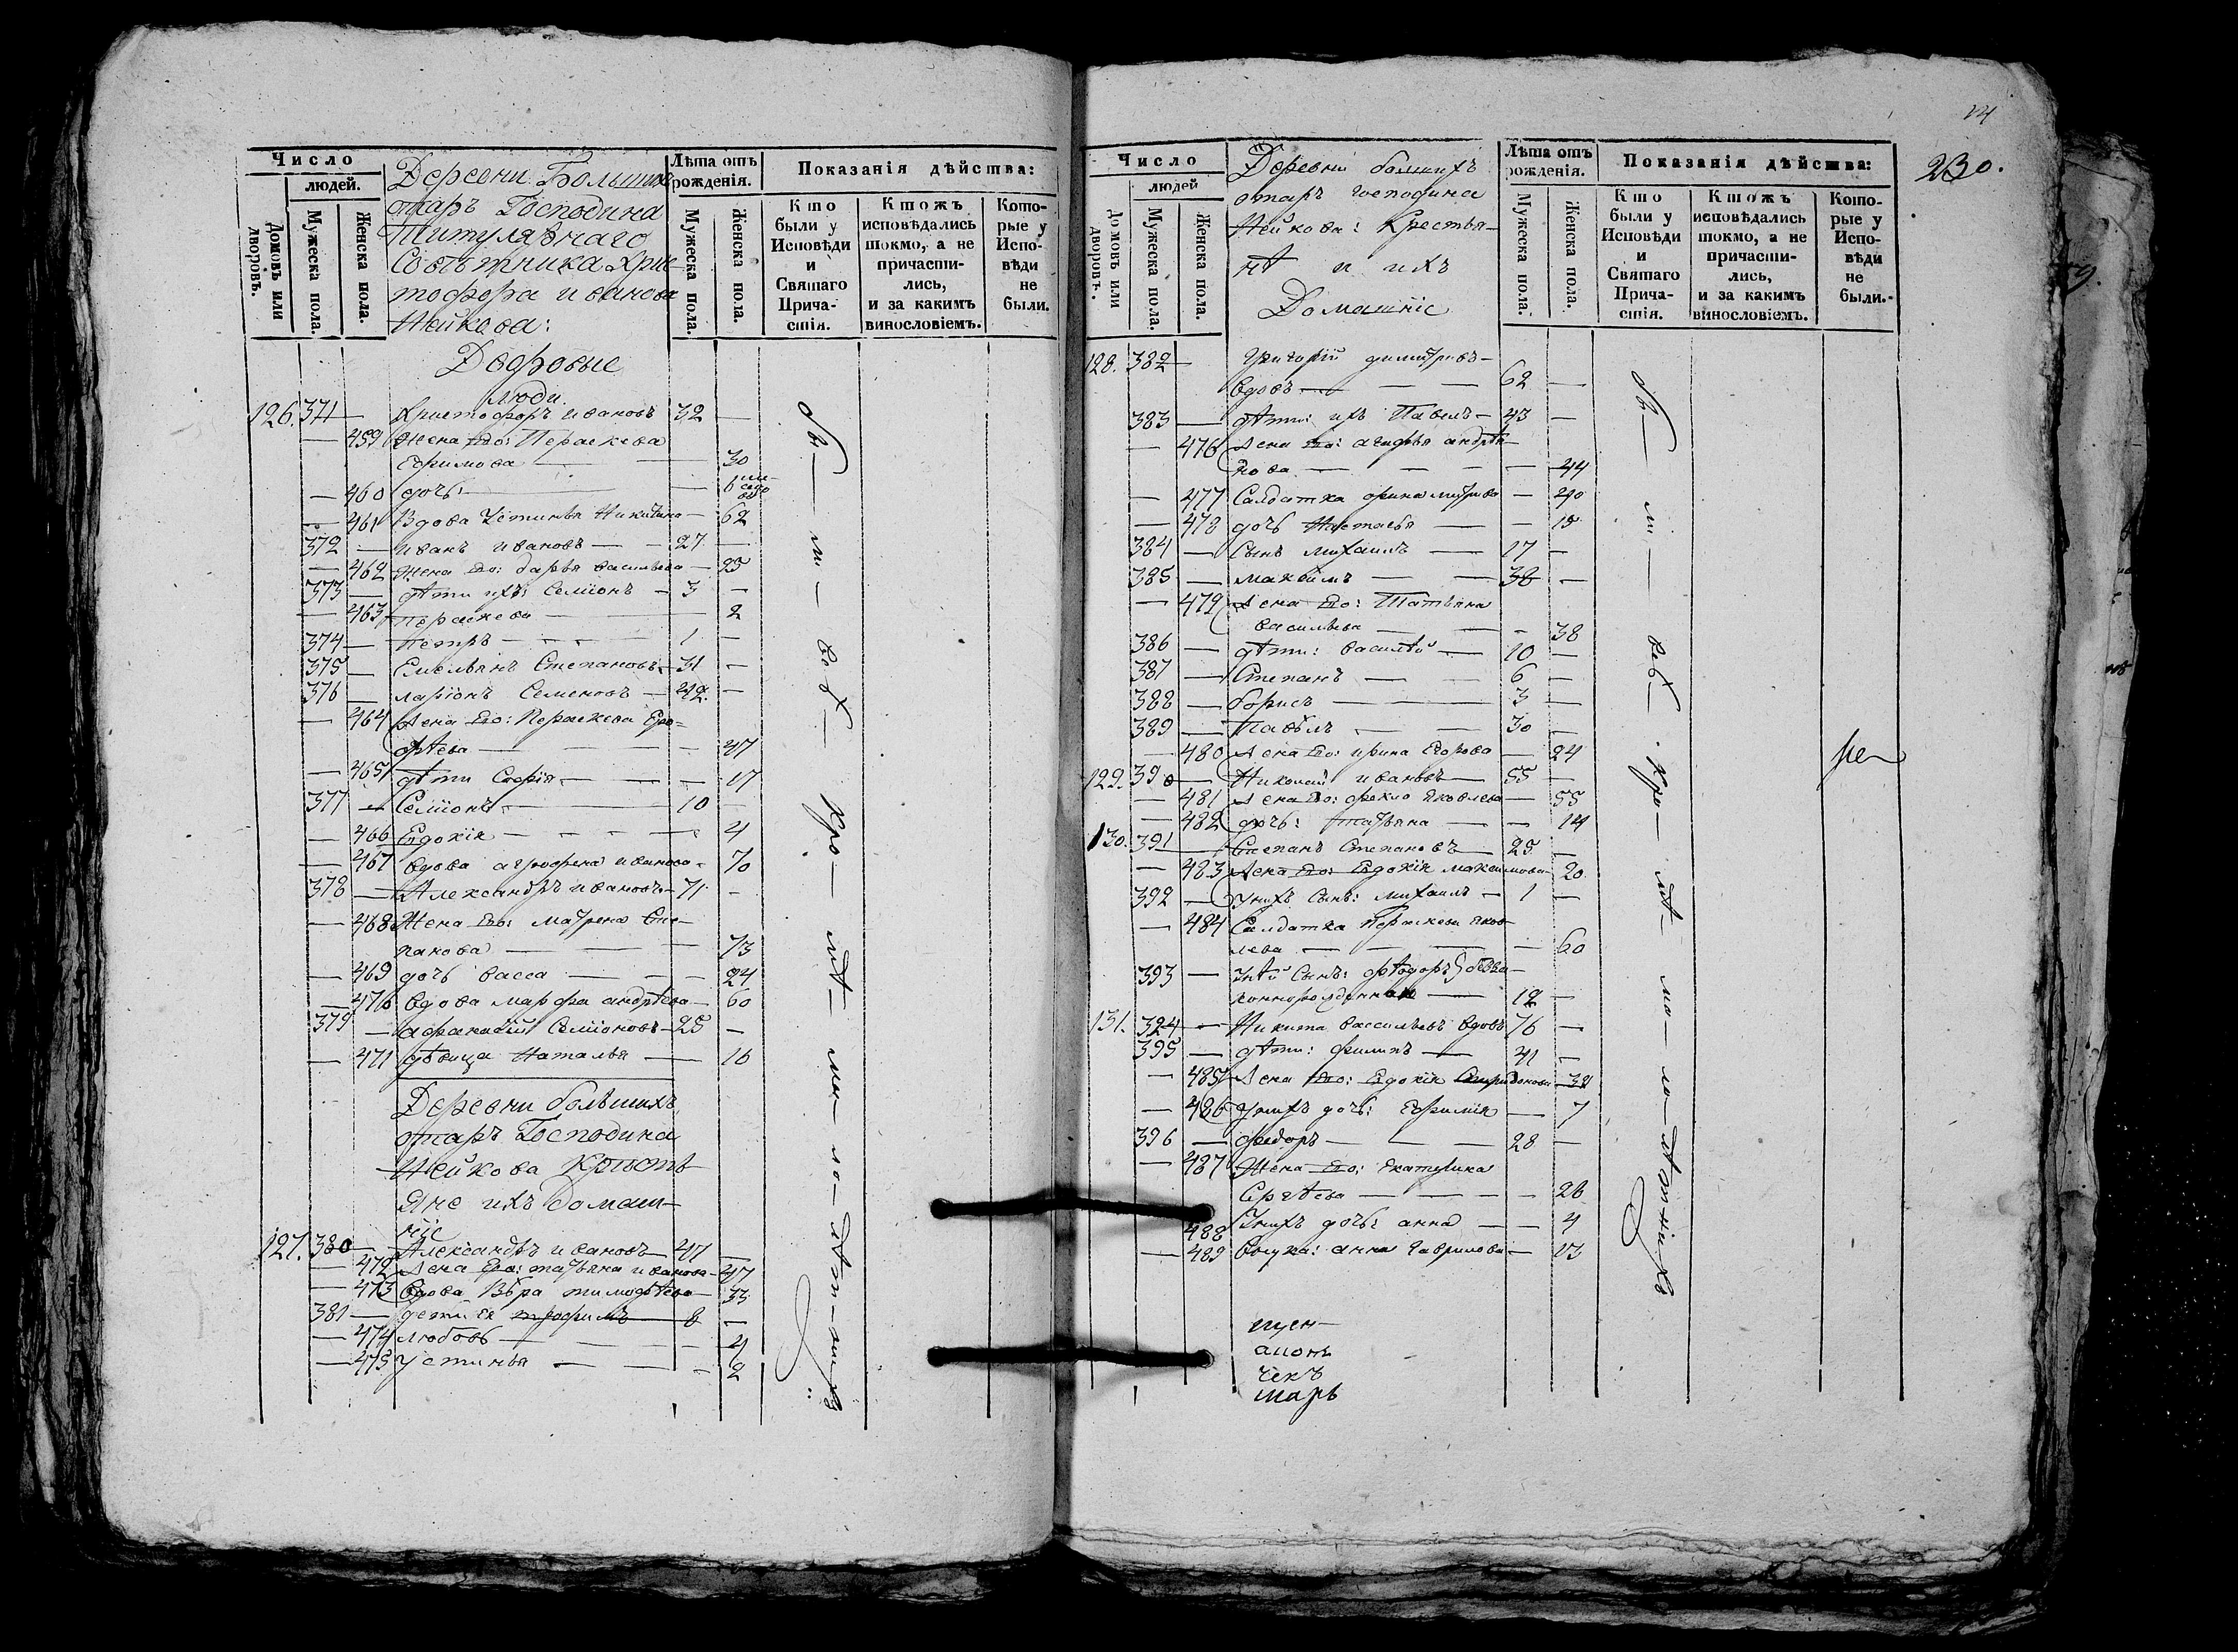 Число
людей.
Домовъ или дворовъ.
Мужеска пола.
Женска пола.
Деревни Большихъ
отаръ Господина
Титулярнаго
Совѣтника Хрис
тофора Иванова
Нейкова:
Лѣта отъ рожденія.
Мужеска пола.
Женска пола.
Показанія дѣйства:
Кто были у Исповѣди и Святаго Прича-стія.
Ктожъ исповѣдались токмо, а не причасти-лись, и за какимъ винословіемъ.
Кото-рые у Испо-вѣди не были.
Дворовые
люди.
126. 371 — Христофоръ Ивановъ 32 —
— 459 Жена Его: Пераскева
Ефимова — — 30
— 460 дочь: — — 6
— 461 Вдова Устинья Никитина — 62
372 — Иванъ Ивановъ — — 27 —
— 462 Жена Его: дарья васильева — 25
373 — дѣти ихъ: Семіонъ — 3 —
— 463 Пераскева — — 2
374 — Петръ — — 1 —
375 — Емельянъ Степановъ — 31 —
376 — ларіонъ Семеновъ — 42 —
— 464 Жена Его: Пераскева Еро-
фѣева — — — 47
— 465 дѣти Софія — — — 17
377 — Семіонъ — — 10 —
— 466 Евдокія — — — 4
— 467 вдова агрофена иванова — 70
378 — Александръ ивановъ — 71 —
— 468 Жена Его: Матрена Сте-
панова — — — 73
— 469 дочь васса — — — 24
— 470 вдова марфа андрѣева — 60
379 — афанасій Семіоновъ — 25 —
— 471 дѣвица Наталья — 16
Деревни большихъ
отаръ Господина
Нейкова Кресть
яне ихъ домаш—
ніе
127. 380 — Александръ ивановъ — 47 —
— 472 Жена Его: татьяна иванова — 47
— 473 вдова Вѣра тимофѣева — 33
381 — дети Ея трофимъ — 8 —
— 474 любовь — — 4
— 475 устинья — — — 2
14
230.
Число
людей
Домовъ или дворовъ.
Мужеска пола.
Женска пола.
Деревни большихъ
отаръ господина
Нейкова: Крестья—
нѣ и ихъ
Домашніе
Лѣта отъ рожденія.
Мужеска пола.
Женска пола.
Показанія дѣйства:
Кто были у Исповѣди и Святаго Прича-стія.
Ктожъ исповѣдались токмо, а не причасти-лись, и за какимъ винословіемъ.
Кото-рые у Испо-вѣди не были.
128. 382 — Григорій димитривъ —
вдовъ — — — 62 —
383 — дѣти: ихъ Павелъ — 43 —
— 476 Жена Его: агафья андрѣя
нова — — — — 44
— 477 Салдатка орина митрева — 40
— 478 дочь Настасья — — 15
384 — Сынъ михаилъ — 17 —
385 — максимъ — — 38 —
— 479 Жена Его: Татьяна
васильева — — — 38
386 — дѣти: василѣй — 10 —
387 — Степанъ — — 6 —
388 — борисъ — — — 3 —
389 — Павѣлъ — — 30 —
— 480 Жена Его: ирина Егорова — 24
129. 390 — Николай ивановъ — 55 —
— 481 Жена Его: фекло Яковлева — 55
— 482 дочь: татьяна — — 14
130. 391 — Степанъ Степановъ — 25 —
— 483 Жена Его: Евдокія максимова — 20
392 — Унихъ Сынъ: михаилъ — 1 —
— 484 Салдатка Пераскева Яков
лева — — — — 60
393 — Унѣй Сынъ: фѣодоръ
— 12 —
131. 394 — Никита васильевъ вдовъ 76 —
395 — дѣти: филипъ — 41 —
— 485 Жена Его: Евдокія Спиридонова — 38
— 486 Унихъ дочь: Ефимія — 7
396 — федоръ — — — 28 —
— 487 Жена Его: Екатерина
Сергѣева — — — — 26
488 Унихъ дочь: анна — — 4
— 489 внука: анна гаврилова — 13